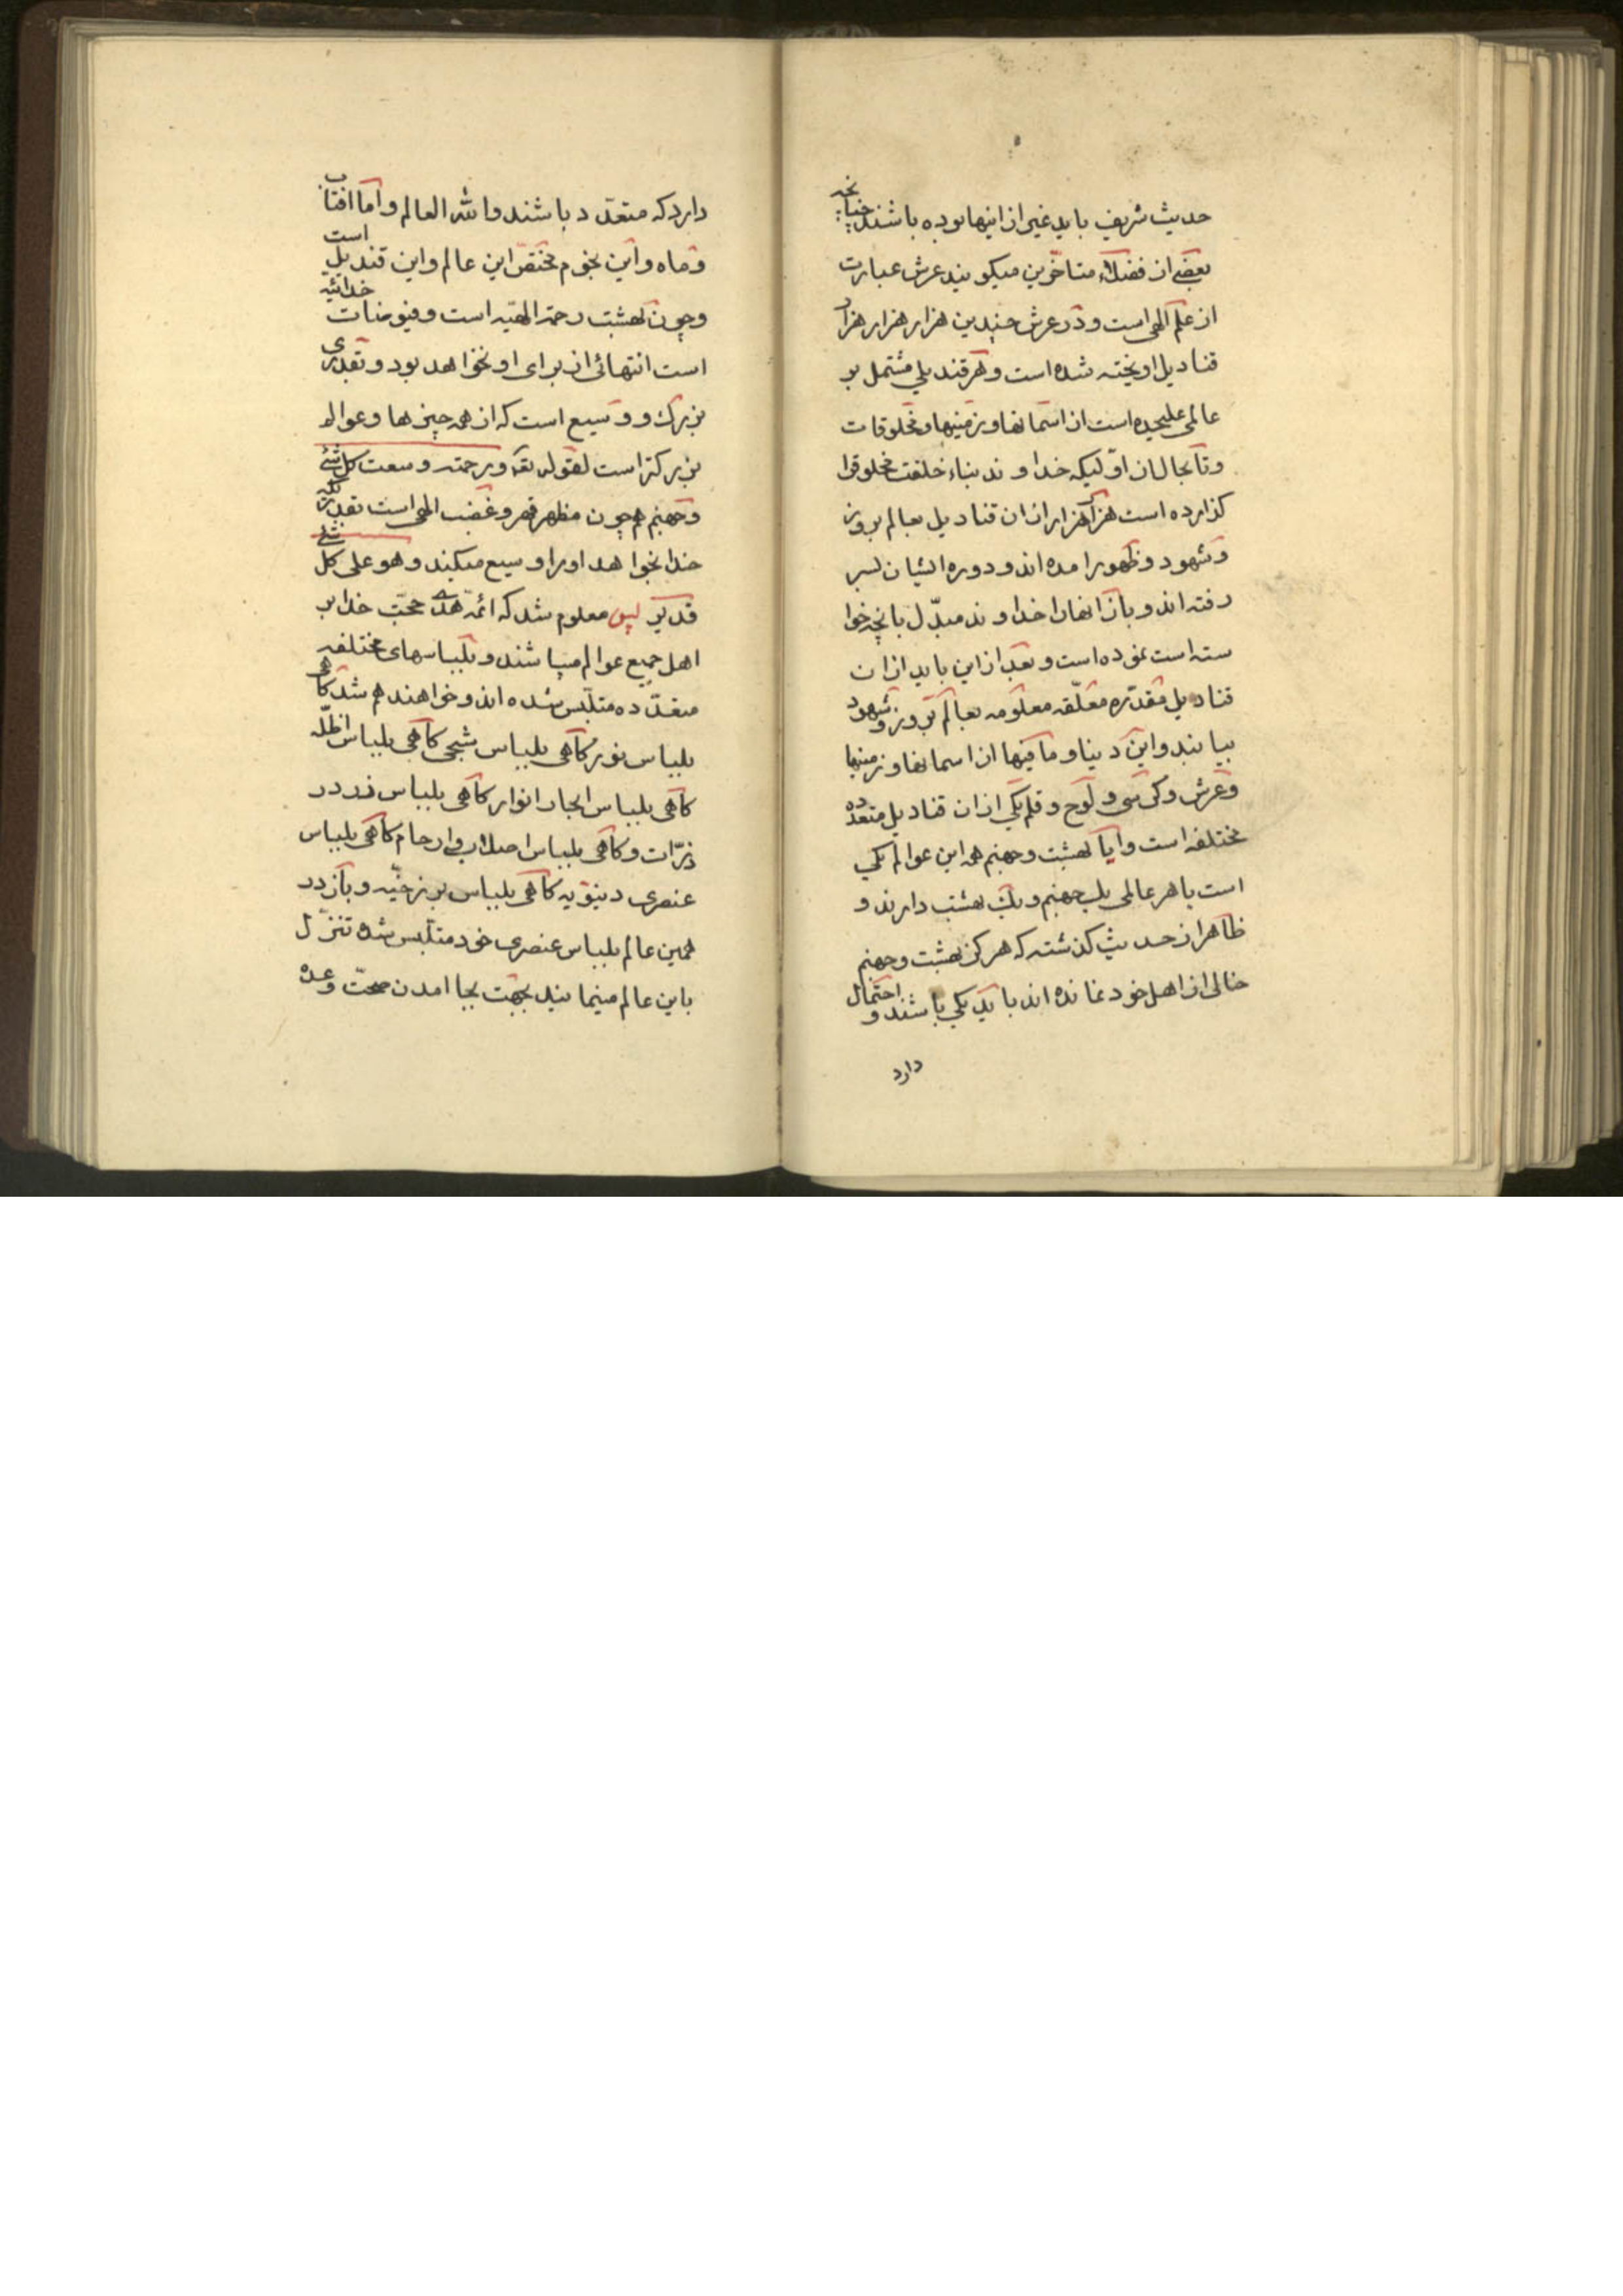 حدیث شریف باید غیر از اینها بوده باشند چنانچه
بعضی از فضلاء متاخرین میکویند عرش عبارت
از علم الهی است و در عرش چندین هزار هزار هزار
قنادیل اویخته شده است و هر قندیلی مشتمل بر
عالمی علیحده است از اسمانها و زمینها و مخلوقات
و تا بحال از اوّلیکه خداوند بناء خلقت مخلوقرا
کذارده است هزار هزار از ان قنادیل بعالم بروز
و شهود و ظهور امده اند و دوره ایشان بسر
رفته اند و باز انها را خداوند مبدّل بانچه خوا
سته است نموده است و بعد از این باید از ان
قنادیل مقدّره معلّقه معلومه بعالم بروز و شهود
بیایند و این دنیا و ما فیها از اسمانها و زمینها
و عرش و کرسی و لوح و قلم یکی از ان قنادیل متعدّده
مختلفه است و ایا بهشت و جهنم همه این عوالم یکی
است یا هر عالمی یک جهنم و یک بهشت دارند و
ظاهر از حدیث کذشته که هرکز بهشت و جهنم
خالی از اهل خود نمانده اند باید یکی باشند و احتمال
دارد
دارد که متعدّد باشند والله العالم و اما افتاب
و ماه و این نجوم مختصّ این عالم و این قندیل است
و چون بهشت رحمة الهیّه است و فیوضات خدائیه
است انتهائی از برای او نخواهد بود و بقدری
بزرک و وسیع است که از همه چیزها و عوالم
بزرکتر است لقوله تعه و رحمته وسعت کل شئ
و جهنم هم چون مظهر قهر و غضب الهی است بقدریکه
خدا بخواهد او را وسیع میکند و هو علی کل شئ
قدیر پس معلوم شد که ائمّه هدی حجّت خدا بر
اهل جمیع عوالم میباشند و بلباسهای مختلفه
متعدّده متلبّس شده اند و خواهند هم شد کاهی
بلباس نور کاهی بلباس شبحی کاهی بلباس اظلّه
کاهی بلباس ابحار انوار کاهی بلباس ذر در
ذرّات و کاهی بلباس اصلاب و ارحام کاهی بلباس
عنصری دنیویه کاهی بلباس برزخیّه و باز در
همین عالم بلباس عنصری خود متلبّس شده تنزّل
باین عالم مینمایند بجهت بجا امدن صحّت وعده